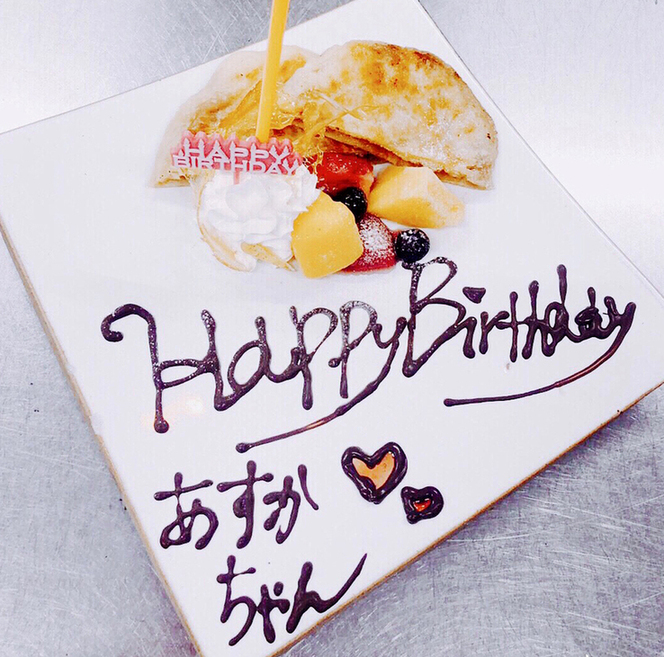 HAPPY
BIRTHDAY
Happy Birthday
あすか
ちゃん